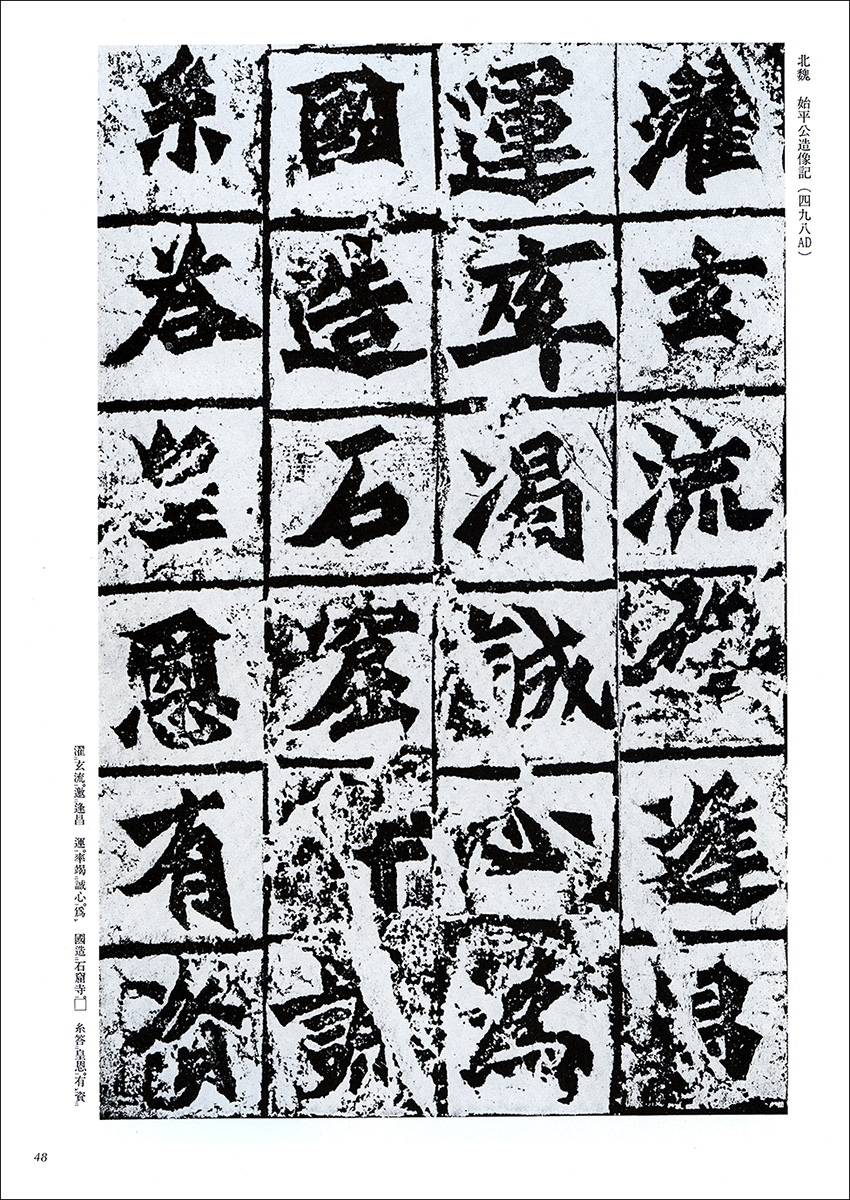 北魏 始平公造像記（四九八AD）
濯玄流邀逢昌
運率渴誠心為
國造石窟寺
糸答皇恩有資
濯玄流邀逢昌 運率竭誠心爲 國造石窟寺□ 糸答皇恩有資
48